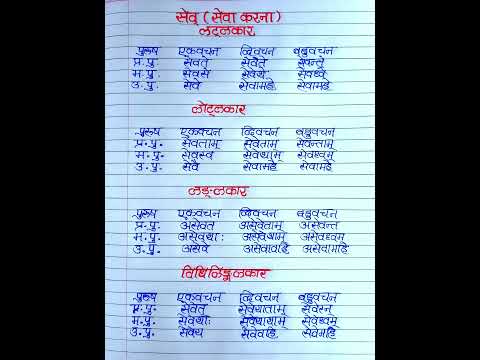 सेव् (सेवा करना)
लट्लकार
पुरुष एकवचन द्विवचन बहुवचन
प्र. पु. सेवते सेवेते सेवन्ते
म. पु. सेवसे सेवेथे सेवध्वे
उ. पु. सेवे सेवामहे सेवामहे
लोट्लकार
पुरुष एकवचन द्विवचन बहुवचन
प्र. पु. सेवताम् सेवेताम् सेवन्ताम्
म. पु. सेवस्व सेवेथाम् सेवध्वम्
उ. पु. सेवै सेवामहै सेवामहै
लङ्लकार
पुरुष एकवचन द्विवचन बहुवचन
प्र. पु. असेवत असेवेताम् असेवन्त
म. पु. असेवथाः असेवेथाम् असेवध्वम्
उ. पु. असेवे असेवावहि असेवामहि
विधिलिङ्लकार
पुरुष एकवचन द्विवचन बहुवचन
प्र. पु. सेवेत सेवेयाताम् सेवेरन्
म. पु. सेवेथाः सेवेयाथाम् सेवेध्वम्
उ. पु. सेवेय सेवेवहि सेवेमहि